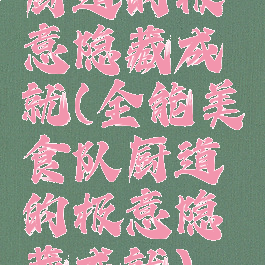 厨道的极
意隐藏成
就(全能美
食队厨道
的极意隐
藏成就)